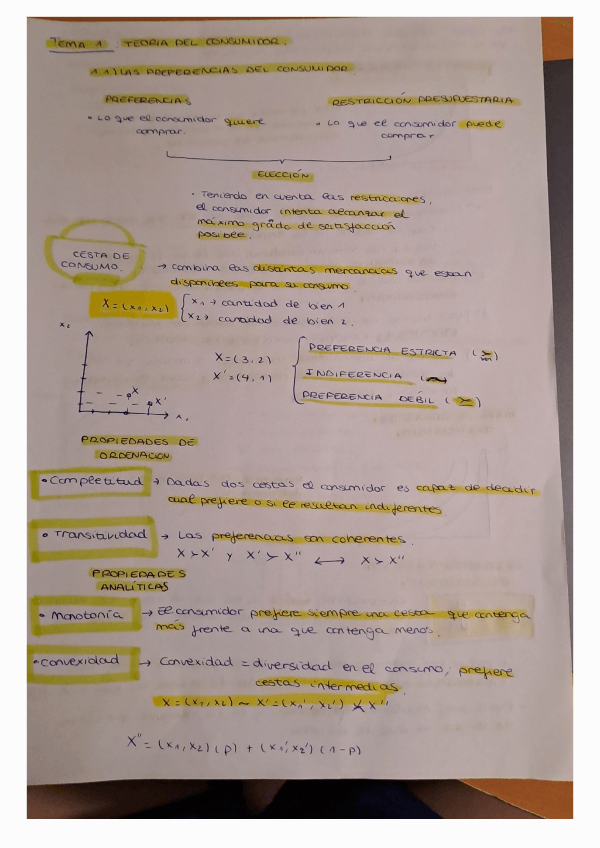 TEMA 1 : TEORIA DEL CONSUMIDOR.
1.1) LAS PREFERENCIAS DEL CONSUMIDOR
PREFERENCIAS
• Lo que el consumidor quiere
comprar.
RESTRICCIÓN PRESUPUESTARIA
• Lo que el consumidor puede
comprar
ELECCIÓN
• Teniendo en cuenta las restricciones,
el consumidor intenta alcanzar el
máximo grado de satisfacción
posible.
CESTA DE
CONSUMO.
→ combina las distintas mercancías que estan
disponibles para su consumo.
X = (x1, x2) { x1 → cantidad de bien 1
x2 → cantidad de bien 2.
x2
X
X'
x1
X = (3,2)
X' = (4,1)
PREFERENCIA ESTRICTA (≻)
INDIFERENCIA (~)
PREFERENCIA DÉBIL (≻)
PROPIEDADES DE
ORDENACION
• Completitud → Dadas dos cestas el consumidor es capaz de decidir
cual prefiere o si le resultan indiferentes
• Transitividad → Las preferencias son coherentes.
X ≻ X' y X' ≻ X'' ⟷ X ≻ X''
PROPIEDADES
ANALÍTICAS
• Monotonía → El consumidor prefiere siempre una cesta que contenga
más frente a una que contenga menos.
• Convexidad → Convexidad = diversidad en el consumo, prefiere
cestas intermedias.
X = (x1, x2) ~ X' = (x1', x2') X''
X'' = (x1, x2) (p) + (x1', x2') (1-p)